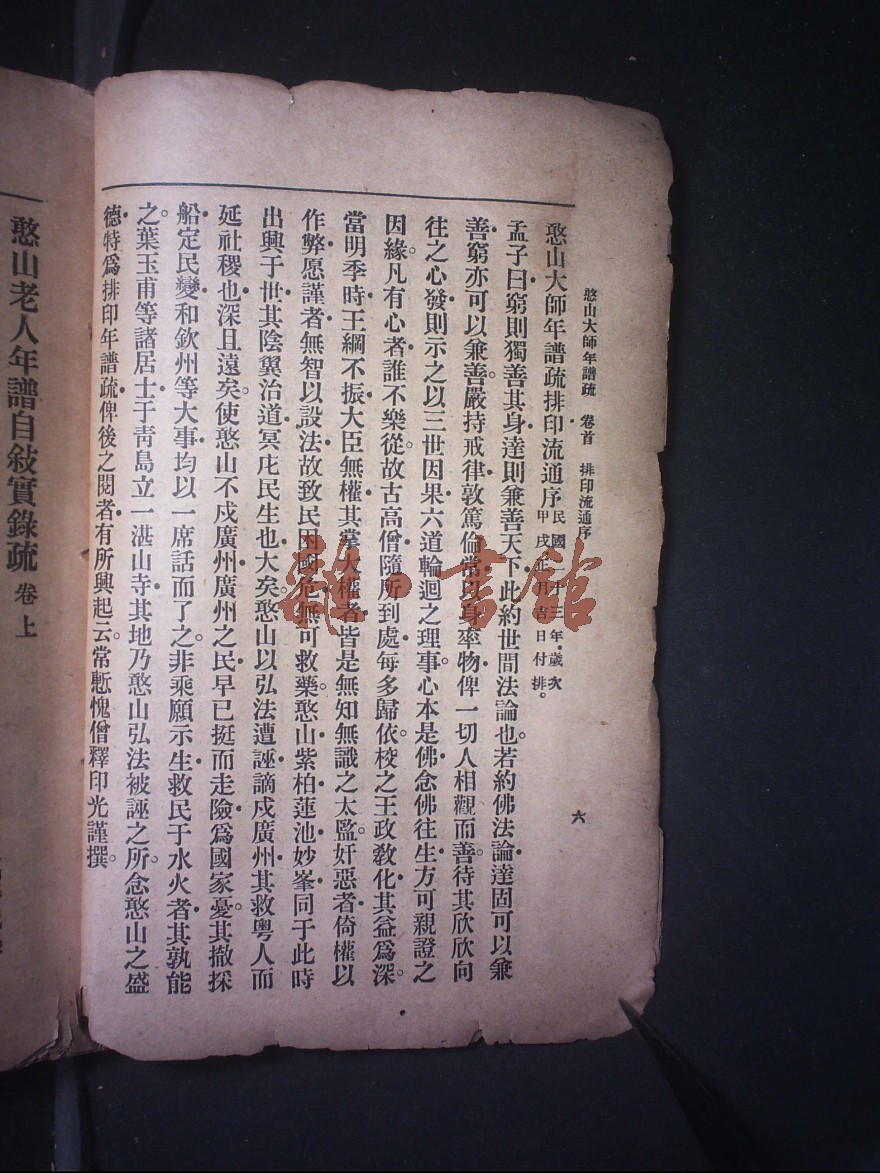 憨山大師年譜疏 卷首 排印流通序 六
憨山大師年譜疏排印流通序 民國二十三年·歲次甲戌正月吉日付排。
孟子曰·窮則獨善其身·達則兼善天下·此約世間法論也。若約佛法論·達固可以兼
善·窮亦可以兼善。嚴持戒律·敦篤倫常·以身率物·俾一切人相觀而善。待其欣欣向
往之心發·則示之以三世因果·六道輪迴之理事·心本是佛·念佛往生·方可親證之
因緣。凡有心者·誰不樂從。故古高僧隨所到處·每多歸依。校之王政敎化·其益爲深。
當明季時·王綱不振·大臣無權·其掌大權者·皆是無知無識之太監。奸惡者·倚權以
作弊·愿謹者·無智以設法·故致民困國危·無可救藥。憨山紫柏蓮池妙峯·同于此時
出興于世·其陰翼治道·冥庇民生也·大矣。憨山以弘法遭誣·謫戍廣州·其救粵人而
延社稷也·深且遠矣。使憨山不戍廣州·廣州之民·早已挺而走險·爲國家憂。其撤採
船·定民變·和欽州等大事·均以一席話而了之。非乘願示生·救民于水火者·其孰能
之。葉玉甫等諸居士·于靑島立一湛山寺·其地乃憨山弘法被誣之所。念憨山之盛
德·特爲排印年譜疏·俾後之閱者·有所興起云。常慙愧僧釋印光謹撰。
憨山老人年譜自敍實錄疏 卷上
雜·書館